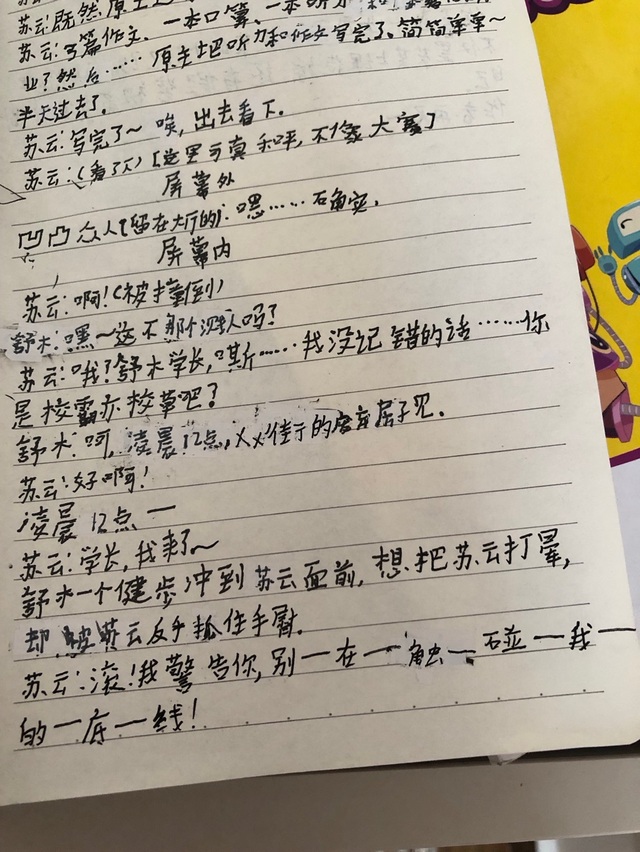 苏云:既然原主
苏云:3篇作文、一本口算、一本听力和
业?然后……原主把听力和作文写完了、简简单单~
半天过去了。
苏云:写完了~ 唉,出去看下。
苏云:(看了下)[这里可真和平,不像大寨]
屏幕外
凹凸众人(留在大厅的):嘿……石角实。
屏幕内
苏云:啊!(被撞倒)
舒木:嘿~这不那个 人吗?
苏云:哦?舒木学长,嘶……我没记错的话……你
是校霸亦校草吧?
舒木:呵,凌晨12点,XX街于的废弃屋子见。
苏云:好啊!
凌晨12点一
苏云:学长,我来了~
舒木一个健步冲到苏云面前,想把苏云打晕,
却被苏云反手抓住手臂。
苏云:滚!我警告你,别一在一触一碰一我一
的一底一线!